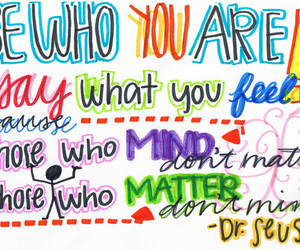 BE WHO YOU ARE
say what you feel
cause
those who MIND don't matt
those who MATTER don't min
-Dr. Seus